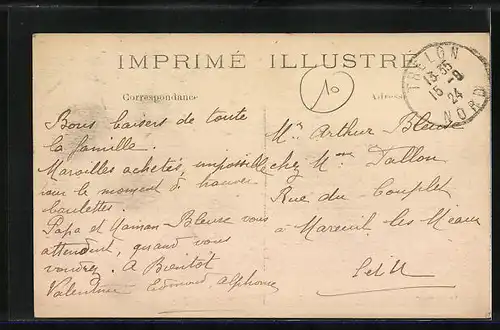 IMPRIMÉ ILLUSTRÉ
Correspondance
Adresse
TRELON
13 35
15 -9
24
NORD
10
Bons baisers de toute
la famille.
Maroilles achetés, impossible
pour le moment à trouver
boulettes.
Papa et Maman-Bleuse vous
attendent, quand vous
voudrez. A Bientôt
Valentine Edmond, Alphonse
Mr Arthur Bleuse
chez Mme Tallon
Rue du Couplet
à Mareuil-les-Meaux